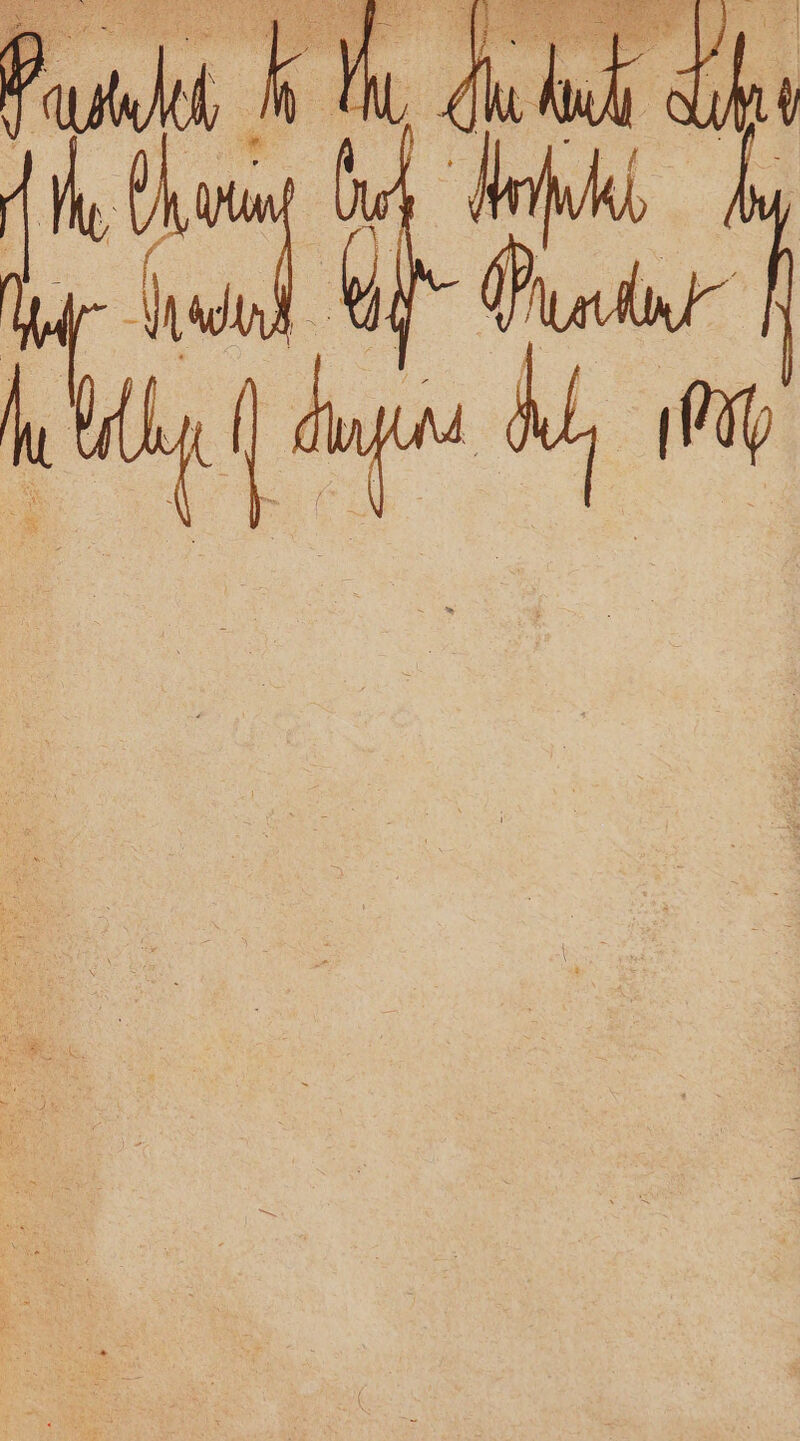 Presented to the Students Libra
of the Charing Cross Hospital by
Travers Esqr President of
the College of Surgeons July 1856